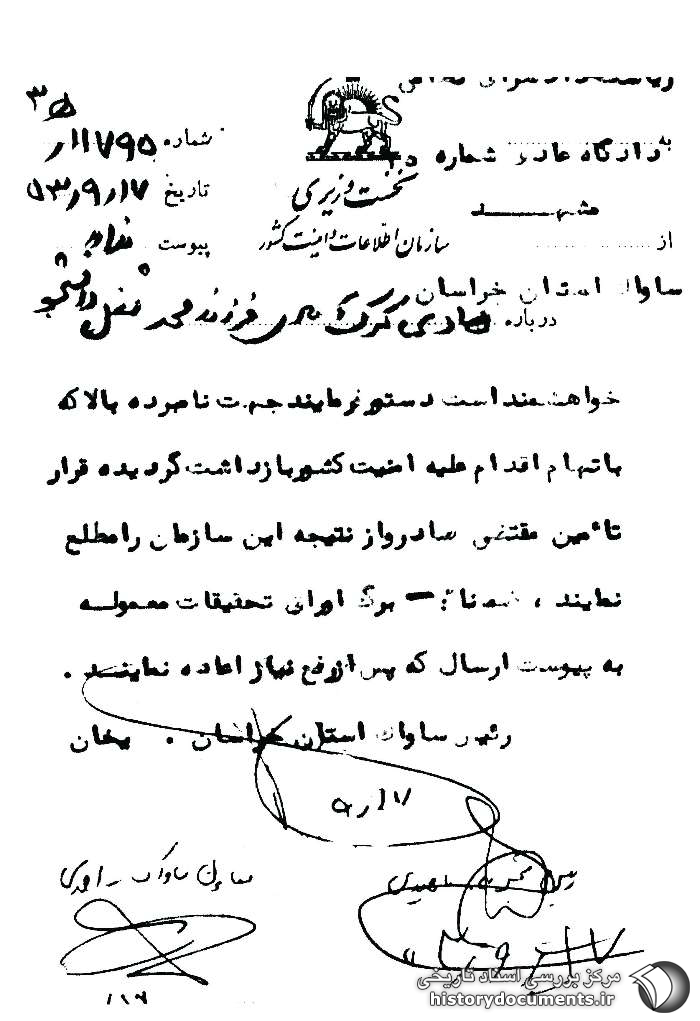 به دادگاه عادی شماره
مشهد
از
ساواک استان خراسان
نخست وزیری
سازمان اطلاعات و امنیت کشور
شماره ۱۱۷۹۵/
تاریخ ۵۳/۹/۱۷
پیوست ندارد
درباره هادی فرزند محمد شغل دانشجو
خواهشمند است دستور فرمایند جهت نامبرده بالا که
باتهام اقدام علیه امنیت کشور بازداشت گردیده قرار
تأمین مقتضی صادر و از نتیجه این سازمان را مطلع
نمایند ، ضمنا برگ اوراق تحقیقات معموله
به پیوست ارسال که پس از رفع نیاز اعاده نمایند .
رئیس ساواک استان خراسان .
۹/۱۷
معاون ساواک
مرکز بررسی اسناد تاریخی
historydocuments.ir